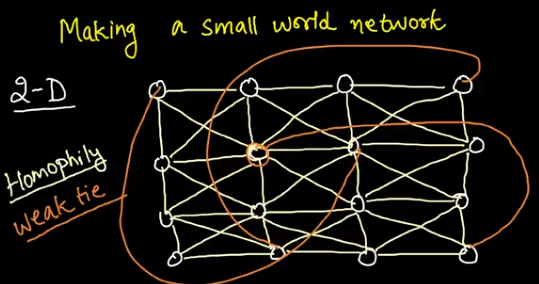 Making a small world network
2-D
Homophily
Weak tie